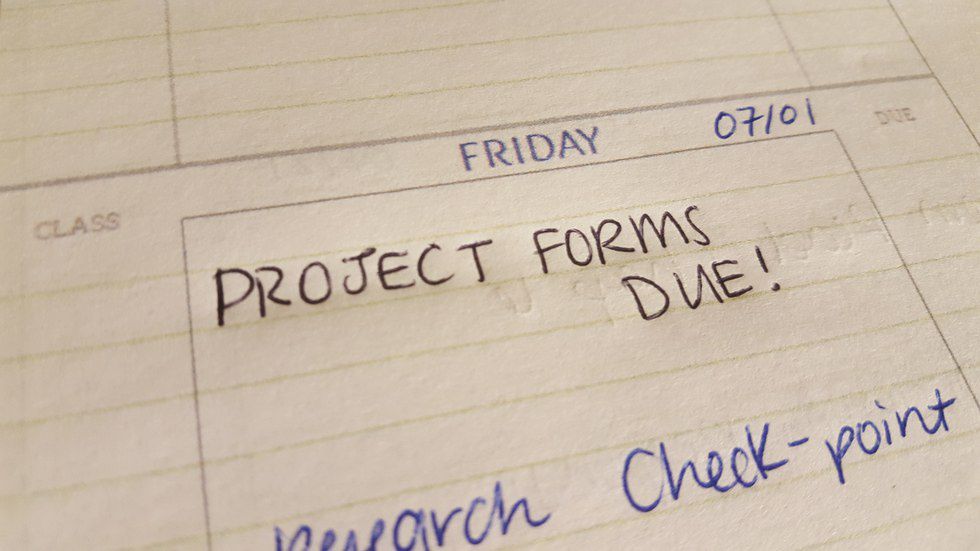 FRIDAY 07/01
CLASS
DUE
PROJECT FORMS
DUE!
research Check-point